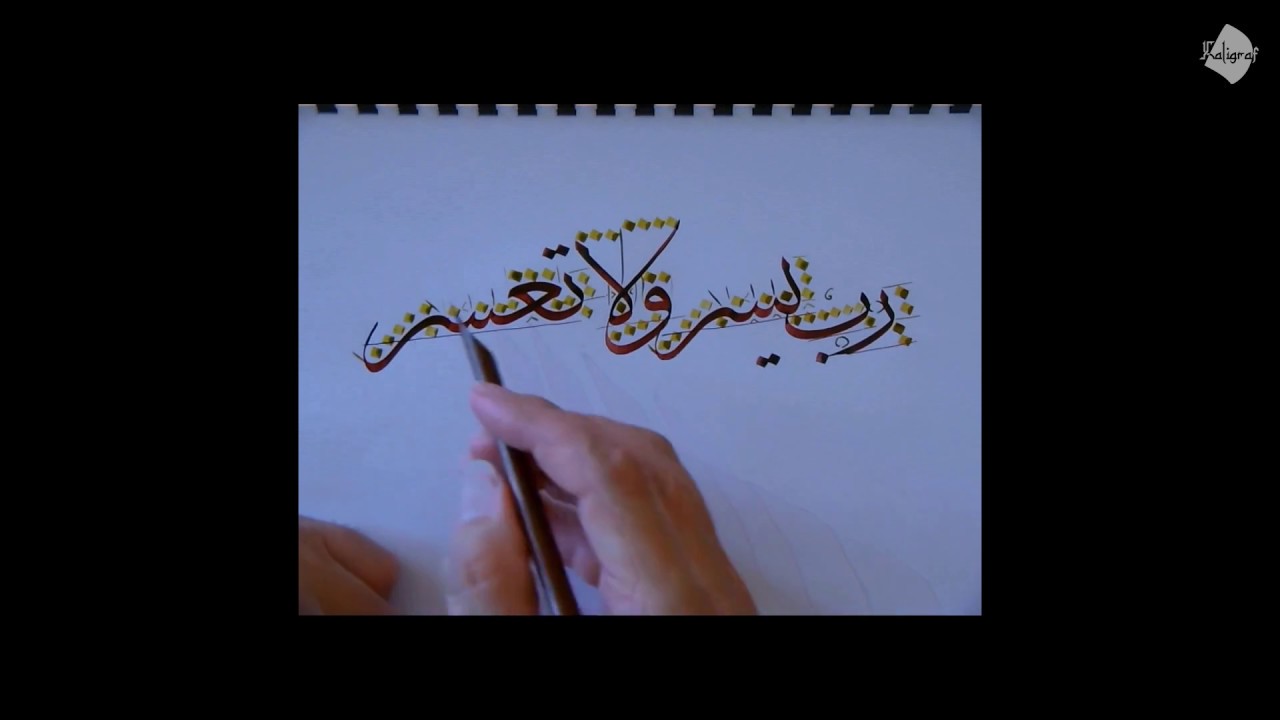 Kaligraf
رب يسر ولا تعسر